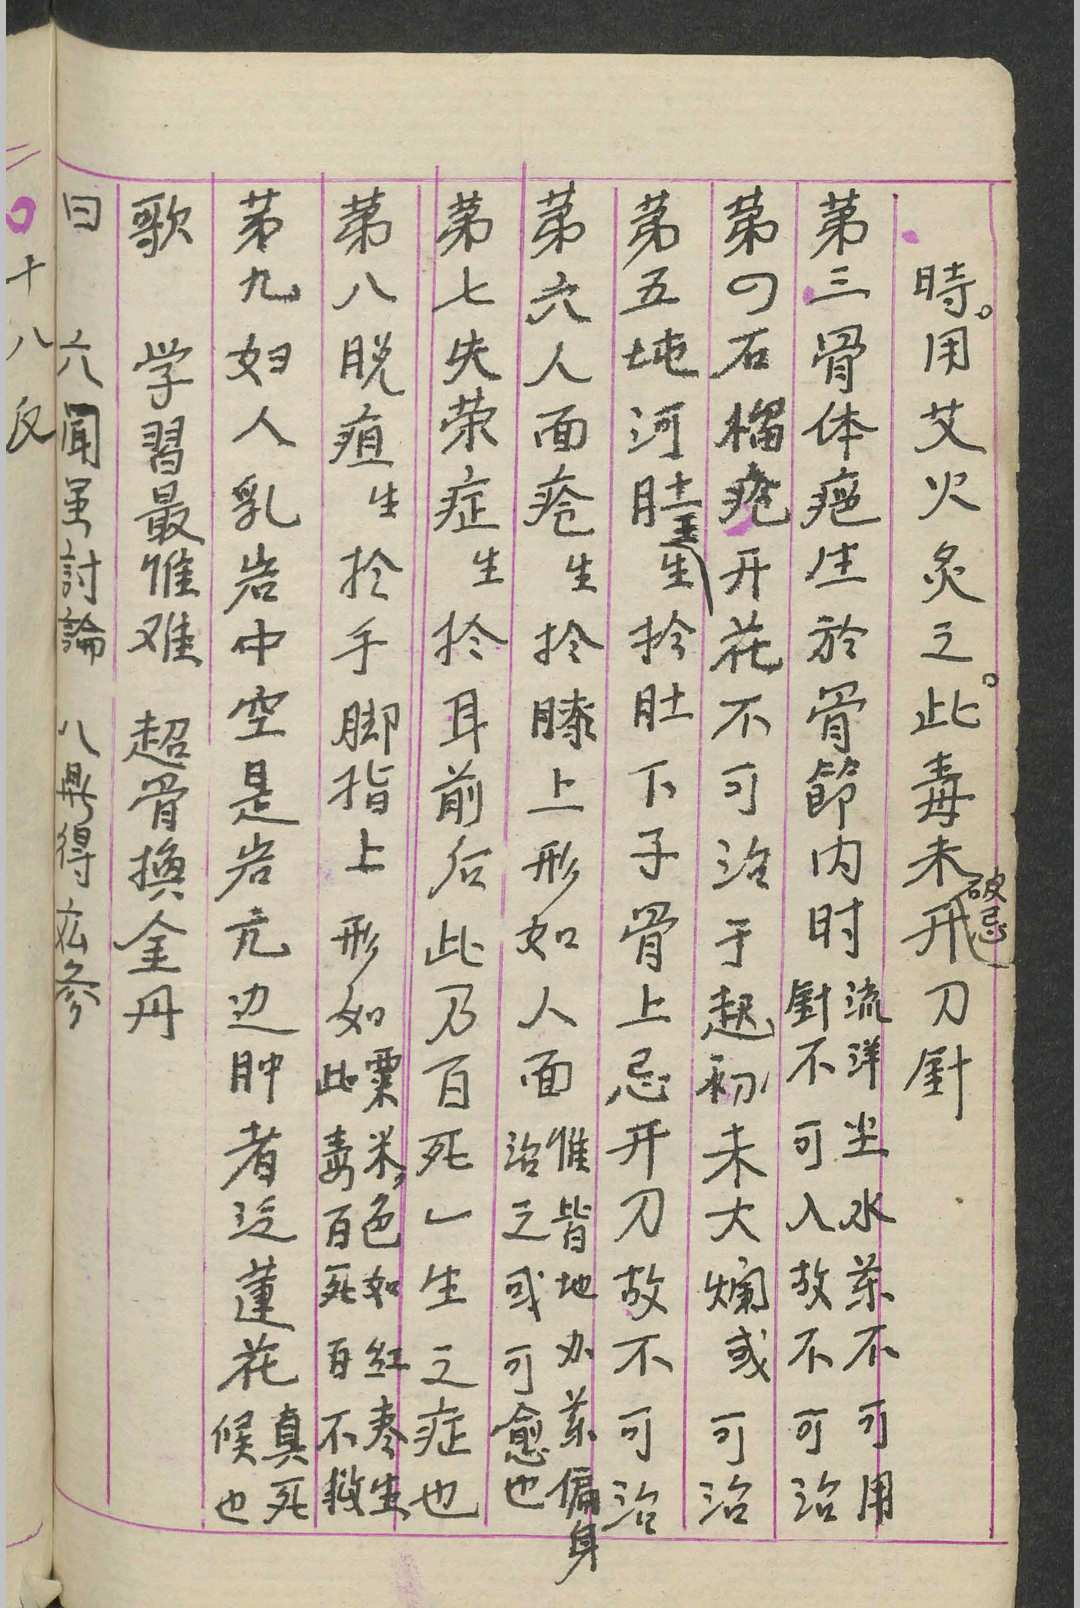 時。用艾火炙之。此毒未破忌开刀針
第三骨体疤生於骨節内时流洋尘水茶不可用針不可入故不可治
第四石榴疮开花不可治于起初未大爛或可治
第五坉河肚生拎肚下子骨上忌开刀故不可治
第六人面疮生拎膝上形如人面惟皆地办茶偏身治之或可愈也
第七失荣症生拎耳前后此乃百死一生之症也
第八脱疽生拎手脚指上形如粟米,色如紅枣生此毒百死百不救
第九妇人乳岩中空是岩亢边肿者泛蓮花真死候也
歌 学習最惟难 超骨換金丹
曰 六聞虽討論 八鼎得応参
十八反